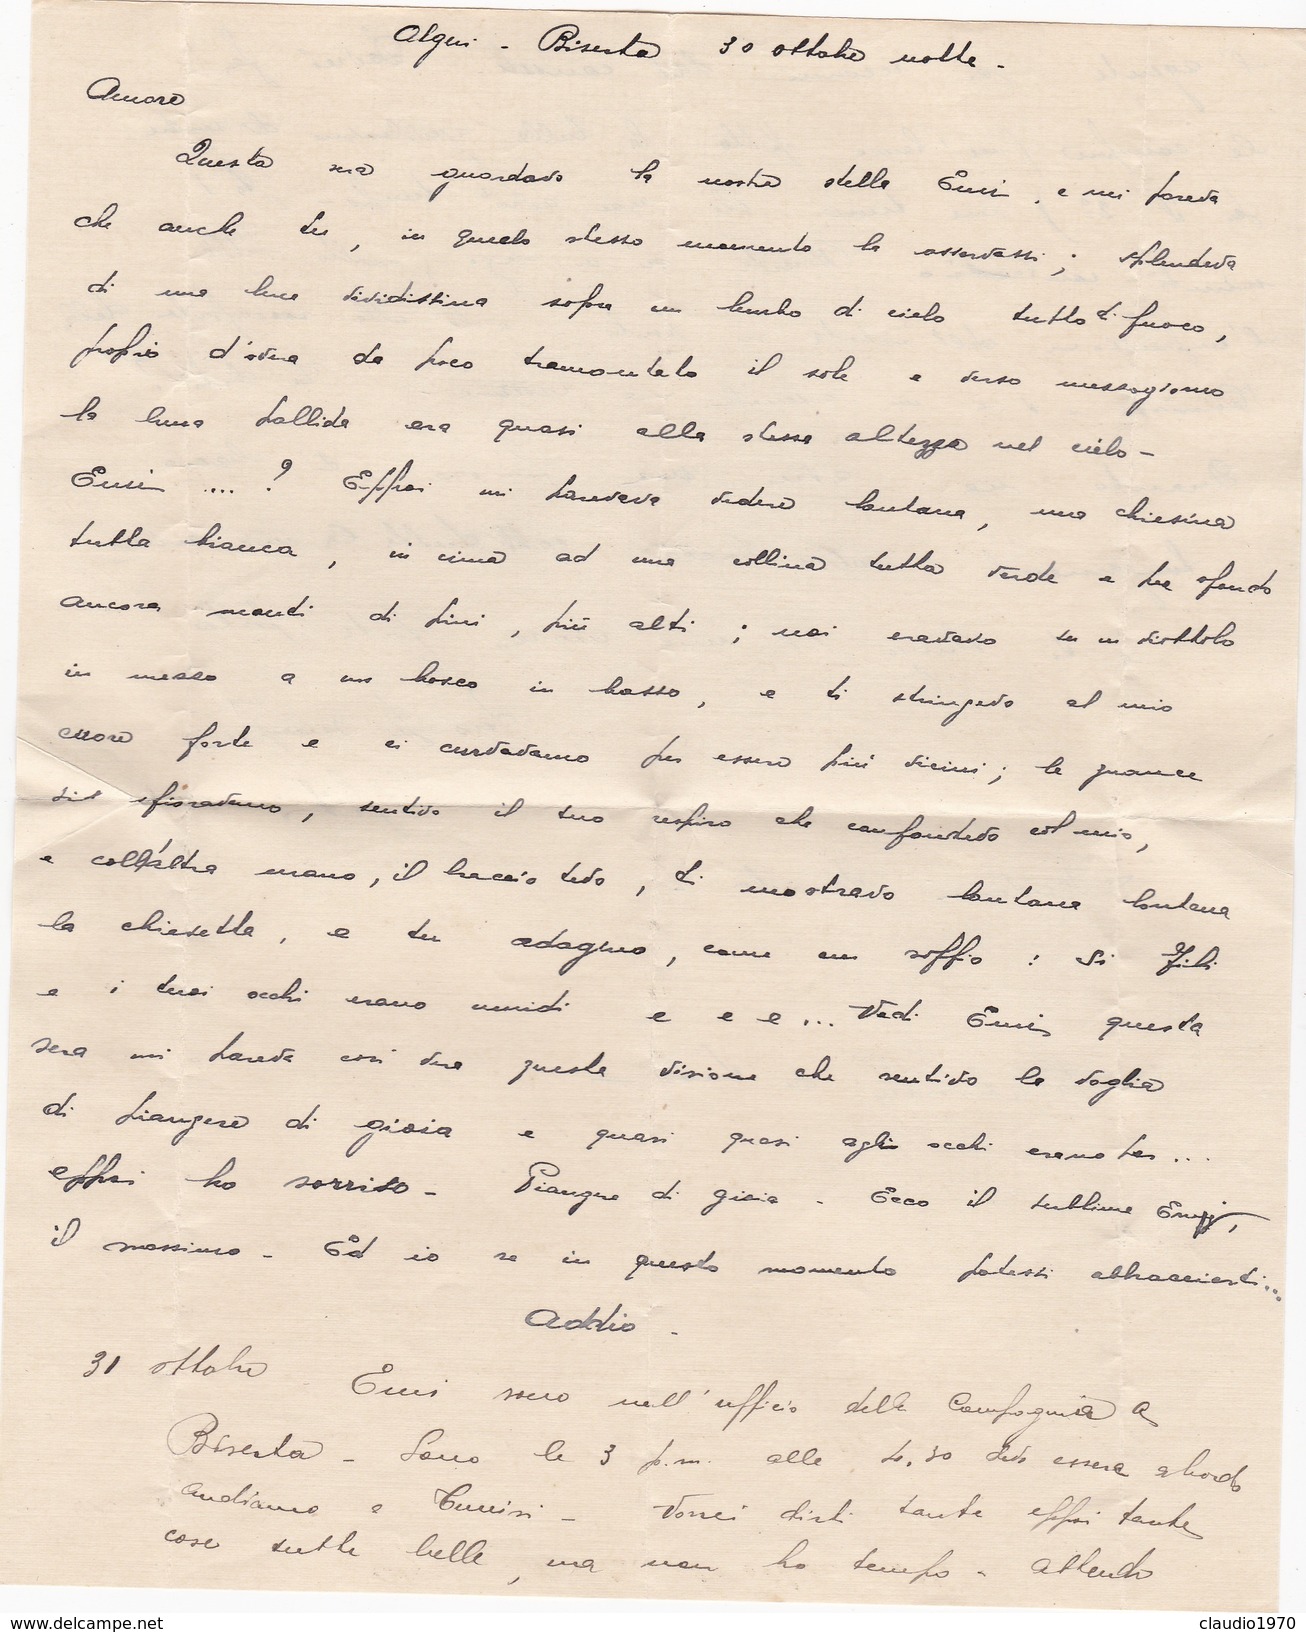 Algeri - Biserta 30 ottobre notte -
Amore
Questa sera guardavo la nostra stella Emi, e mi pareva
che anche tu, in quello stesso momento la osservassi; splendeva
di una luce vividissima sopra un lembo di cielo tutto di fuoco,
proprio d'dov'era da poco tramontato il sole e verso mezzogiorno
la luna pallida era quasi alla stessa altezza nel cielo -
Emi .... ? Eppoi mi pareva vedere lontana, una chiesina
tutta bianca, in cima ad una collina tutta verde e per sfondo
ancora monti di pini, più alti; noi eravamo su un viottolo
in mezzo a un bosco in basso, e ti stringevo al mio
cuore forte e ci curvavamo per essere più vicini; le guance
si sfioravano, sentivo il tuo respiro che confondevo col mio,
e coll'altra mano, il braccio teso, ti mostravo lontana lontana
la chiesetta, e tu adagino, come un soffio: si
e i tuoi occhi erano umidi e e e ... Vedi Emi questa
sera mi pareva così vera questa visione che sentivo la voglia
di piangere di gioia e quasi quasi agli occhi erano per ...
eppoi ho sorriso - Piangere di gioia - Ecco il sublime Emi,
il massimo - Ed io se in questo momento potessi abbracciarti...
Addio -
31 ottobre Emi sono nell'ufficio della Compagnia a
Biserta - Sono le 3 p.m. alle 4,30 devo essere a bordo
andiamo a Tunisi - Vorrei dirti tante eppoi tante
cose tutte belle, ma non ho tempo - attendo
www.delcampe.net
claudio1970